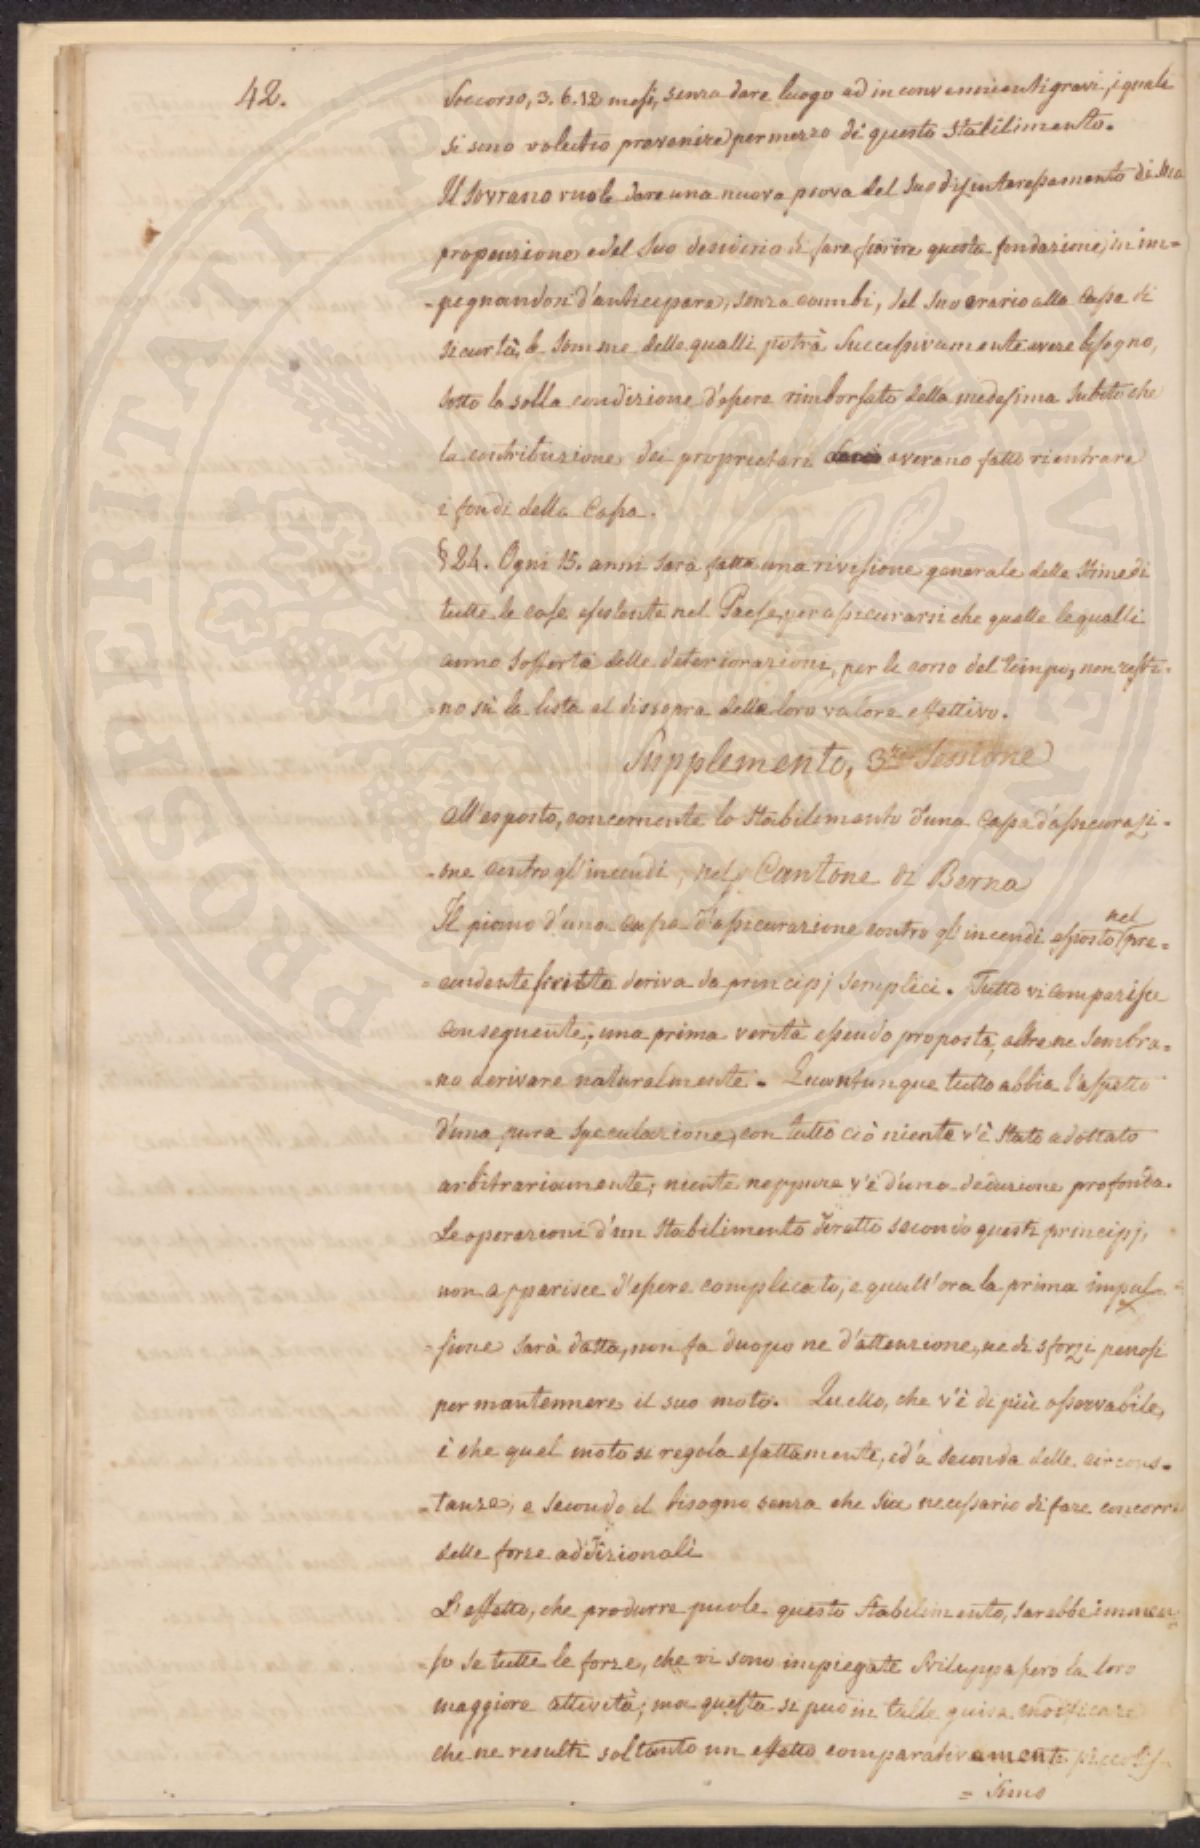 42.
Soccorso, 3. 6. 12 mesi, senza dare luogo ad inconvenienti gravi, i quali
si sono voluttio prevenire per mezzo di questo Stabilimento.
Il Sovrano vuole dare una nuova prova del Suo disinteressamento di sua
propensione e del Suo desiderio di fare fiorire questa fondazione, in im=
=pegnandosi d'anticipare, senza cambi, del Suo erario alla Cassa di
sicurtà, le Somme delle qualli potrà Successivamente avere bisogno,
sotto la solla condizione d'essere rimborsato della medesima Subito che
la contribuzione dei proprietari averano fatto rientrare
i fondi della Cassa.
§ 24. Ogni 15. anni Sarà fatta una rivisione generale delle Stime di
tutte le case esistente nel Paese, per assicurarsi che quelle le qualli
anno Sofferta delle deteriorazioni, per le corso del tempo, non resti=
=no sù la lista al dissopra della loro valore effettivo.
Supplemento, 3za Sessione
All'esposto, concernente lo Stabilimento d'una Cassa d'assicurazi=
=one contro gl'incendi, nel Cantone di Berna
Il piano d'una cassa d'assicurazione contro gl'incendi esposto nel pre=
=cedente scritto deriva da principj semplici. Tutto vi comparisce
conseguente; una prima verità essendo proposta, altre ne sembra=
=no derivare naturalmente. Quantunque tutto abbia l'aspetto
d'una pura Speculazione, con tutto ciò niente v'è Stato adottato
arbitrariamente; niente neppure v'è d'una deduzione profonda.
Le operazioni d'un Stabilimento diretto secondo questi principj,
non apparisce d'essere complicato, e quall'ora la prima impul=
=sione sarà datta, non fa duopo ne d'attenzione, ne di sforzi penosi
per mantennere il suo moto. Quello, che v'è di più osservabile,
è che quel moto si regola esattamente, ed'a seconda delle circons=
=tanze, e secondo il bisogno senza che Sia necessario di fare concorre
delle forze addizionali
L'effetto, che produrre puole questo Stabilimento, sarebbe immen=
=so se tutte le forze, che vi sono impiegate Sviluppassero la loro
maggiore attività; ma questa si può in talle guisa modificare
che ne resulti soltanto un effetto comparativamente piccolis
= simo